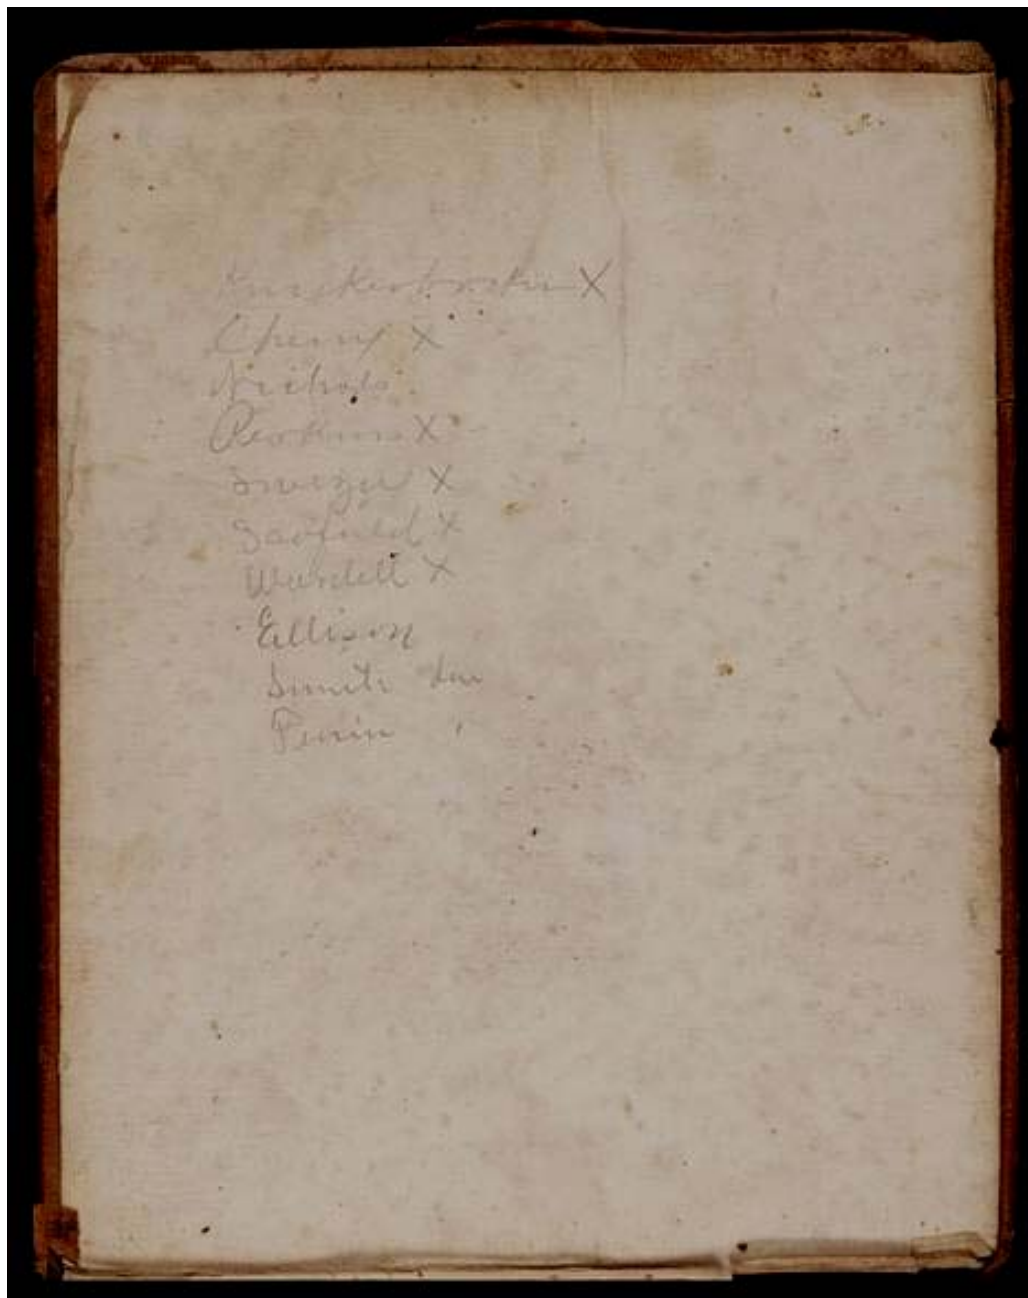 Knickerbocker X
Cherry X
Nichols
Perkins X
Swezey X
Garfield X
Wardell X
Ellison
Smith
Perrin